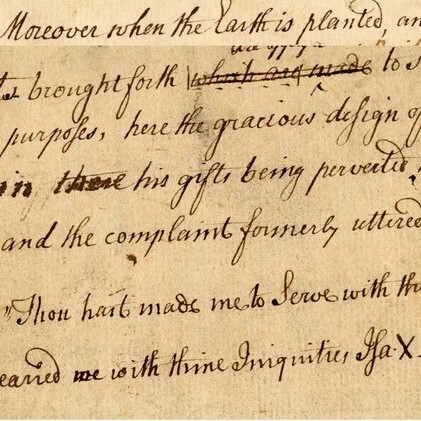 Moreover when the Earth is planted, an
ts brought forth which are made to s
purposes, here the gracious design of
in there his gifts being perverted,
and the complaint formerly uttered
"Thou hast made me to Serve with th
earied me with thine Iniquities Isa. X